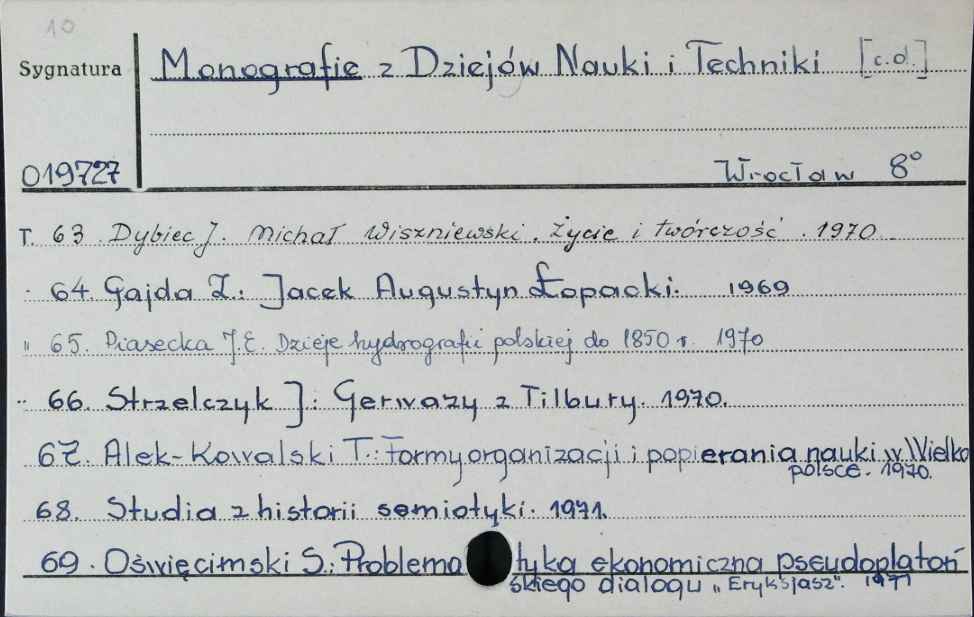 10
Sygnatura
Monografie z Dziejów Nauki i Techniki [c.d.]
019727
Wrocław 8°
T. 63. Dybiec J. Michał Wiszniewski. Życie i twórczość. 1970
" 64. Gajda Z.: Jacek Augustyn Łopacki. 1969
" 65. Piasecka J.E. Dzieje hydrografii polskiej do 1850 r. 1970
" 66. Strzelczyk J: Gerwazy z Tilbury. 1970.
67. Alek-Kowalski T.: Formy organizacji i popierania nauki w Wielko
polsce. 1970.
68. Studia z historii semiotyki. 1971.
69. Oświęcimski S.: Problematyka ekonomiczna pseudoplatoń
skiego dialogu „Eryksjasz". 1971